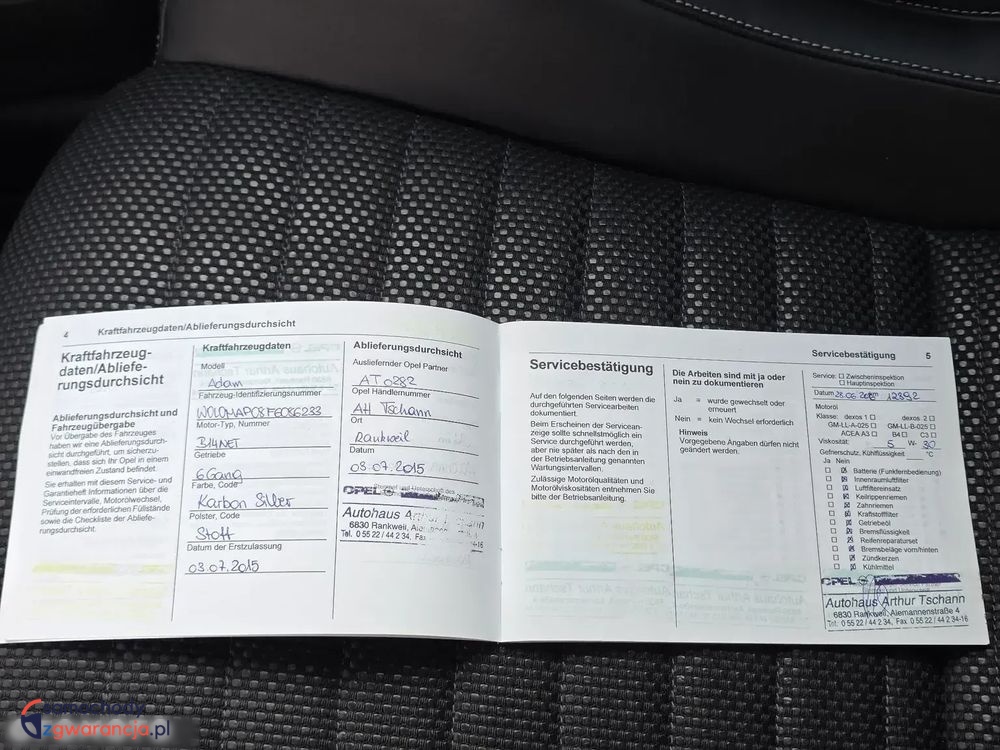 4 Kraftfahrzeugdaten/Ablieferungsdurchsicht
Kraftfahrzeug-
daten/Abliefe-
rungsdurchsicht
Ablieferungsdurchsicht und
Fahrzeugübergabe
Vor Übergabe des Fahrzeuges
haben wir eine Ablieferungsdurch-
sicht durchgeführt, um sicherzu-
stellen, dass sich Ihr Opel in einem
einwandfreien Zustand befindet.
Sie erhalten mit diesem Service- und
Garantieheft Informationen über die
Serviceintervalle, Motorölwechsel,
Prüfung der erforderlichen Füllstände
sowie die Checkliste der Abliefe-
rungsdurchsicht.
Kraftfahrzeugdaten
Modell
Adam
Fahrzeug-Identifizierungsnummer
W0L0MAP08F6086233
Motor-Typ, Nummer
B14NET
Getriebe
6 Gang
Farbe, Code
Karbon Silber
Polster, Code
Stoff
Datum der Erstzulassung
03.07.2015
Ablieferungsdurchsicht
Ausliefernder Opel Partner
AT 0282
Opel Händlernummer
AH Tschann
Ort
Rankweil
Datum
03.07.2015
OPEL
Autohaus Arthur
6830 Rankweil,
Tel. 0 55 22 / 44 2 34, Fax
Servicebestätigung 5
Servicebestätigung
Auf den folgenden Seiten werden die
durchgeführten Servicearbeiten
dokumentiert.
Beim Erscheinen der Servicean-
zeige sollte schnellstmöglich ein
Service durchgeführt werden,
aber nie später als nach den in
der Betriebsanleitung genannten
Wartungsintervallen.
Zulässige Motorölqualitäten und
Motorölviskositäten entnehmen Sie
bitte der Betriebsanleitung.
Die Arbeiten sind mit ja oder
nein zu dokumentieren
Ja = wurde gewechselt oder
erneuert
Nein = kein Wechsel erforderlich
Hinweis
Vorgegebene Angaben dürfen nicht
geändert werden.
Service: Zwischeninspektion
Hauptinspektion
Datum 12392
Motoröl
Klasse: dexos 1 dexos 2
GM-LL-A-025 GM-LL-B-025
ACEA A3 B4 C3
Viskosität: 5 W- 30
Gefrierschutz, Kühlflüssigkeit °C
Ja Nein
Batterie (Funkfernbedienung)
Innenraumluftfilter
Luftfiltereinsatz
Keilrippenriemen
Zahnriemen
Kraftstofffilter
Getriebeöl
Bremsflüssigkeit
Reifenreparaturset
Bremsbeläge vorn/hinten
Zündkerzen
Kühlmittel
OPEL
Autohaus Arthur Tschann
6830 Rankweil, Alemannenstraße 4
Tel. 0 55 22 / 44 2 34, Fax 0 55 22 / 44 2 34-16
zgwarancja.pl